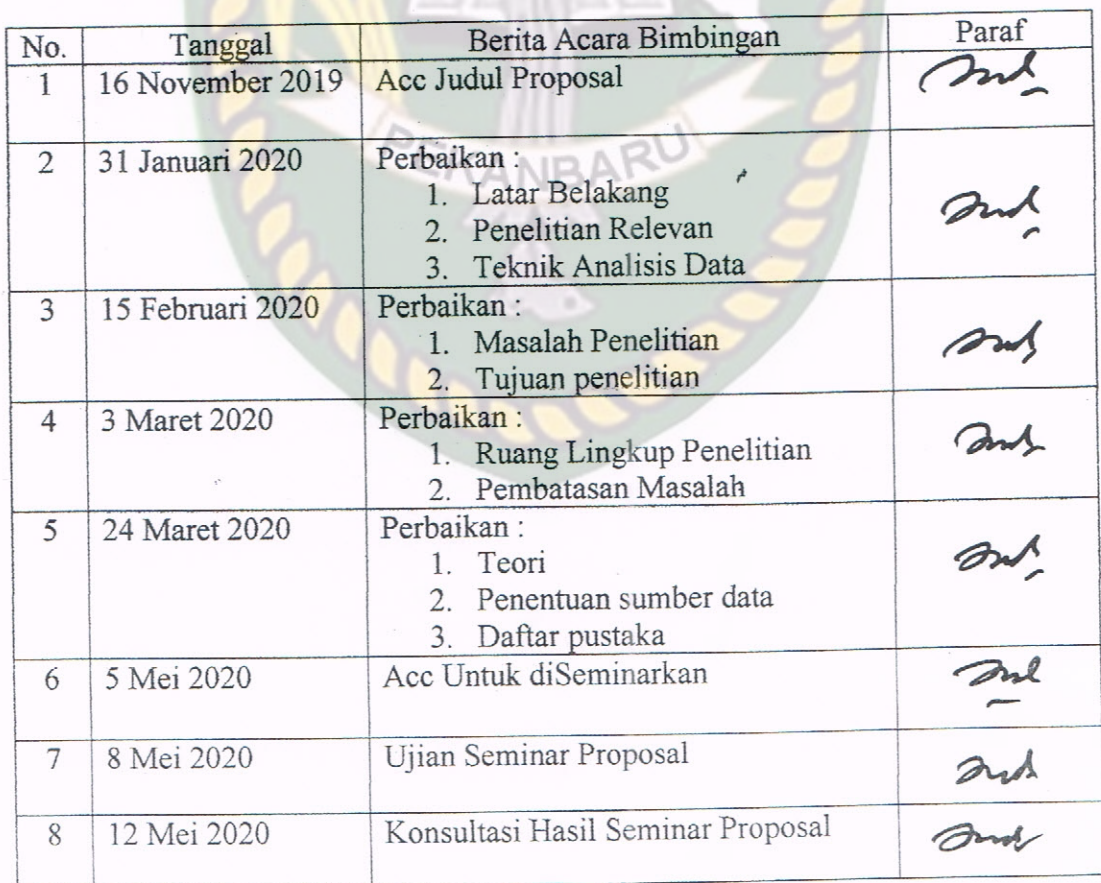 No. Tanggal Berita Acara Bimbingan Paraf
1 16 November 2019 Acc Judul Proposal
2 31 Januari 2020 Perbaikan :
1. Latar Belakang
2. Penelitian Relevan
3. Teknik Analisis Data
3 15 Februari 2020 Perbaikan :
1. Masalah Penelitian
2. Tujuan penelitian
4 3 Maret 2020 Perbaikan :
1. Ruang Lingkup Penelitian
2. Pembatasan Masalah
5 24 Maret 2020 Perbaikan :
1. Teori
2. Penentuan sumber data
3. Daftar pustaka
6 5 Mei 2020 Acc Untuk diSeminarkan
7 8 Mei 2020 Ujian Seminar Proposal
8 12 Mei 2020 Konsultasi Hasil Seminar Proposal
PEKANBARU